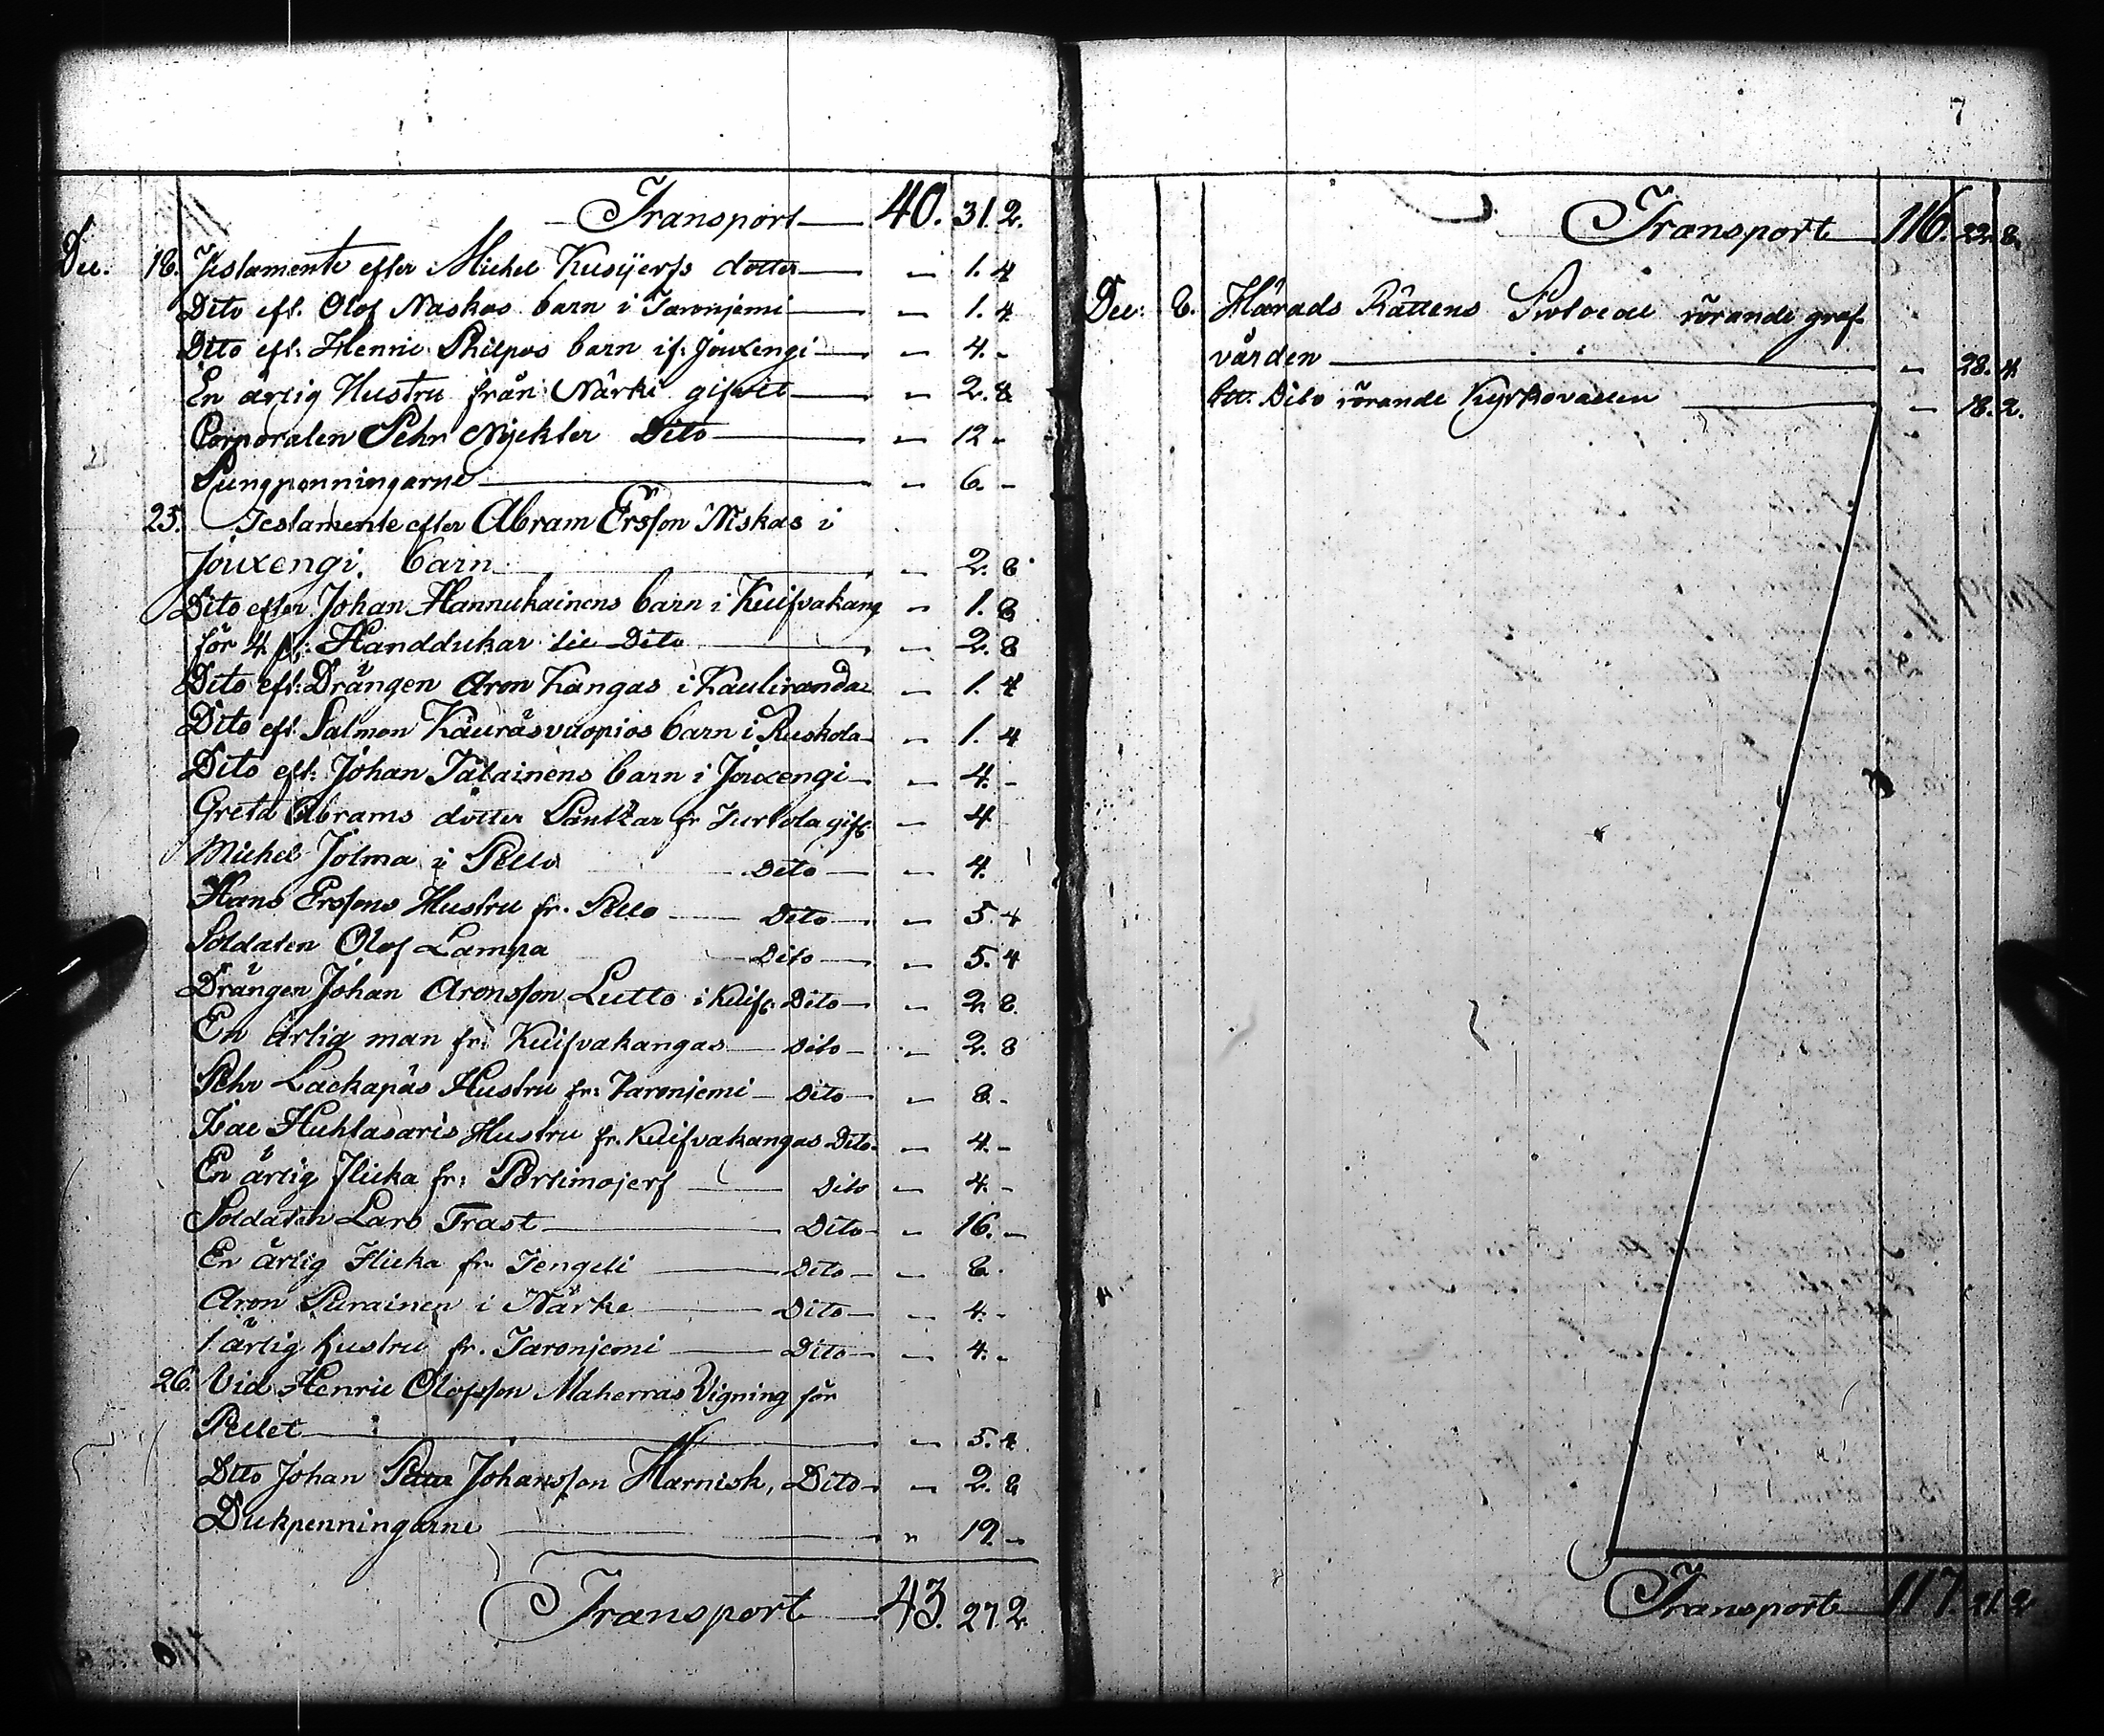 Transport — 40. 31. 2.
Dec. 18. Testamente efter Michel Kusijerfs dotter — " 1. 4
Dito eft. Olof Naskas barn i Taronjemi — " 1. 4
Dito eft: Henric Philpus barn if: Jouxengi — " 4. -
En ärlig Hustru från Närki gifvit — " 2. 8
Corporalen Pehr Nyckler Dito — " 12 -
Pungpenningarne — " 6. -
25. Testamente efter Abram Ersson Niskas i
Jouxengi barn — " 2. 8
Dito efter Johan Hannukainens barn i Kuifvakang " 1. 8
för 4 st: Handdukar til Dito — " 2. 8
Dito eft: Drängen Aron Kangas i Kauliranda — " 1. 4
Dito eft. Salmon Kauräsvuopios barn i Ruskola — " 1. 4
Dito eft: Johan Talainens barn i Jouxengi — " 4. -
Greta Abrams dotter fr Turtola gift " 4
Michel Jolma i Pello — Dito — " 4.
Hans Erssons Hustru fr. Pello — Dito — " 5. 4
Soldaten Olof Lampa — Dito — " 5. 4
Drängen Johan Aronsson Lutto i Kuif: Dito — " 2. 8.
En ärlig man fr: Kuifvakangas — Dito — " 2. 8
Pehr Lackapäs Hustru fr: Taronjemi — Dito — " 8. -
Isac Huhtasaris Hustru fr. Kuifvakangas Dito — " 4. -
En ärlig flicka fr: Portimojerf — Dito " 4. -
Soldaten Lars Trast — Dito — " 16. -
En ärlig Flicka fr. Tengeli — Dito — " 8.
Aron Purainen i Närke — Dito — " 4. -
1 ärlig hustru fr. Taronjemi — Dito — " 4. -
26. Vid Henric Olofsson Mahernas Vigning för
Pellet — " 5. 4
Dito Johan Johansson Harnisk, Dito — " 2. 8
Dukpenningarne — " 19. -
Transport — 43. 27. 2.
7
Transport — 116. 22. 8.
Dec: 8. Härads Rättens Protocol rörande graf-
vården — " 28. 4
Dito rörande Kyrkovallen — " 18. 2.
Transport — 117. 21. 2